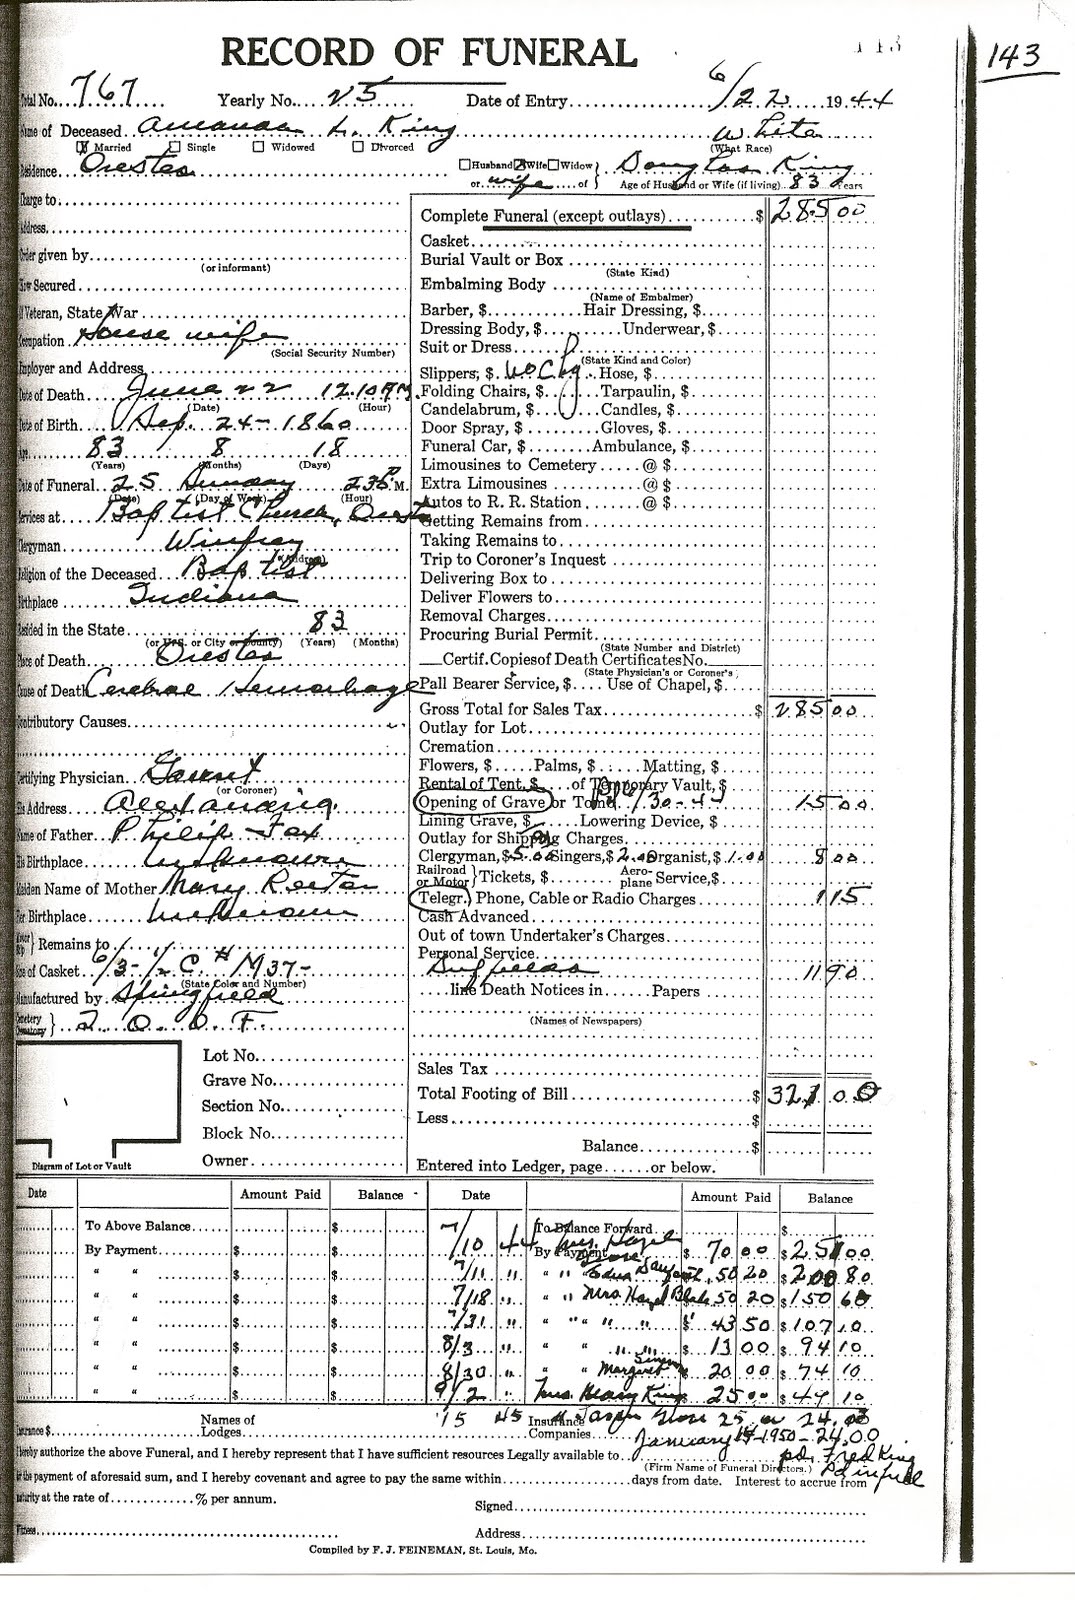 143
RECORD OF FUNERAL
Total No. 767 Yearly No. 25 Date of Entry 6/22 1944
Name of Deceased Amanda L. King White
Married Single Widowed Divorced (What Race)
Residence Orestes Husband Wife Widow or wife of Douglas King
Age of Husband or Wife (if living) 83 Years
Charge to
Address
Order given by
(or informant)
How Secured
If Veteran, State War
Occupation House wife
(Social Security Number)
Employer and Address
Date of Death June 22 12.10 P.M.
(Date) (Hour)
Date of Birth Sep. 24 - 1860
Age 83 8 18
(Years) (Months) (Days)
Date of Funeral 25 Sunday 2 30 P.M.
(Date) (Day of Week) (Hour)
Services at Baptist Church, Orestes
Clergyman Winfrey
(Address)
Religion of the Deceased Baptist
Birthplace Indiana
Resided in the State 83
(or U.S. or City or County) (Years) (Months)
Place of Death Orestes
Cause of Death Cerebral Hemorhage
Contributory Causes
Certifying Physician Gaunt
(or Coroner)
His Address Alexandria
Name of Father Philip Fox
His Birthplace Unknown
Maiden Name of Mother Mary Reeter
Her Birthplace Unknown
Remains to
Size of Casket 6/3 - 1/2 C. # 1937 -
(State Color and Number)
Manufactured by Springfield
I. O. O. F.
Lot No.
Grave No.
Section No.
Block No.
Owner
Diagram of Lot or Vault
Complete Funeral (except outlays) $ 285 00
Casket
Burial Vault or Box
(State Kind)
Embalming Body
(Name of Embalmer)
Barber, $ Hair Dressing, $
Dressing Body, $ Underwear, $
Suit or Dress
(State Kind and Color)
Slippers, $ No Chg. Hose, $
Folding Chairs, $ Tarpaulin, $
Candelabrum, $ Candles, $
Door Spray, $ Gloves, $
Funeral Car, $ Ambulance, $
Limousines to Cemetery @ $
Extra Limousines @ $
Autos to R. R. Station @ $
Getting Remains from
Taking Remains to
Trip to Coroner's Inquest
Delivering Box to
Deliver Flowers to
Removal Charges
Procuring Burial Permit
(State Number and District)
Certif. Copies of Death Certificates No.
(State Physician's or Coroner's)
Pall Bearer Service, $ Use of Chapel, $
Gross Total for Sales Tax $ 285 00
Outlay for Lot
Cremation
Flowers, $ Palms, $ Matting, $
Rental of Tent, $ of Temporary Vault, $
Opening of Grave or Tomb 6/30-44 15 00
Lining Grave, $ Lowering Device, $
Outlay for Shipping Charges
Clergyman, $ 5.00 Singers, $ 2.00 Organist, $ 1.00 8 00
Railroad or Motor } Tickets, $ Aeroplane Service, $
Telegr. Phone, Cable or Radio Charges 1 15
Cash Advanced
Out of town Undertaker's Charges
Personal Service
11 90
line Death Notices in Papers
(Names of Newspapers)
Sales Tax
Total Footing of Bill $ 321 00
Less $
Balance $
Entered into Ledger, page or below.
Date Amount Paid Balance Date Amount Paid Balance
To Above Balance $ To Balance Forward $
By Payment $ $ 7/10 44 By Payment Mrs. Hazel $ 70 00 $ 251 00
" " $ $ 7/11 " " " Edna 50 20 $ 200 80
" " $ $ 7/18 " " " Mrs Hazel Blake 50 20 $ 150 60
" " $ $ 7/31 " " " " " $ 43 50 $ 107 10
" " $ $ 8/3 " " " " $ 13 00 $ 94 10
" " $ $ 8/30 " " Margaret $ 20 00 $ 74 10
" " $ $ 9/2 " Mrs. Mary King 25 00 $ 49 10
Insurance $ Names of Lodges 15 45 Insurance Companies Jasper 25 24.00
January 1950 - 24.00
pd. Fred King
Pd in full
I hereby authorize the above Funeral, and I hereby represent that I have sufficient resources Legally available to
(Firm Name of Funeral Directors.)
for the payment of aforesaid sum, and I hereby covenant and agree to pay the same within days from date. Interest to accrue from
maturity at the rate of % per annum.
Signed
Witness Address
Compiled by F. J. FEINEMAN, St. Louis, Mo.